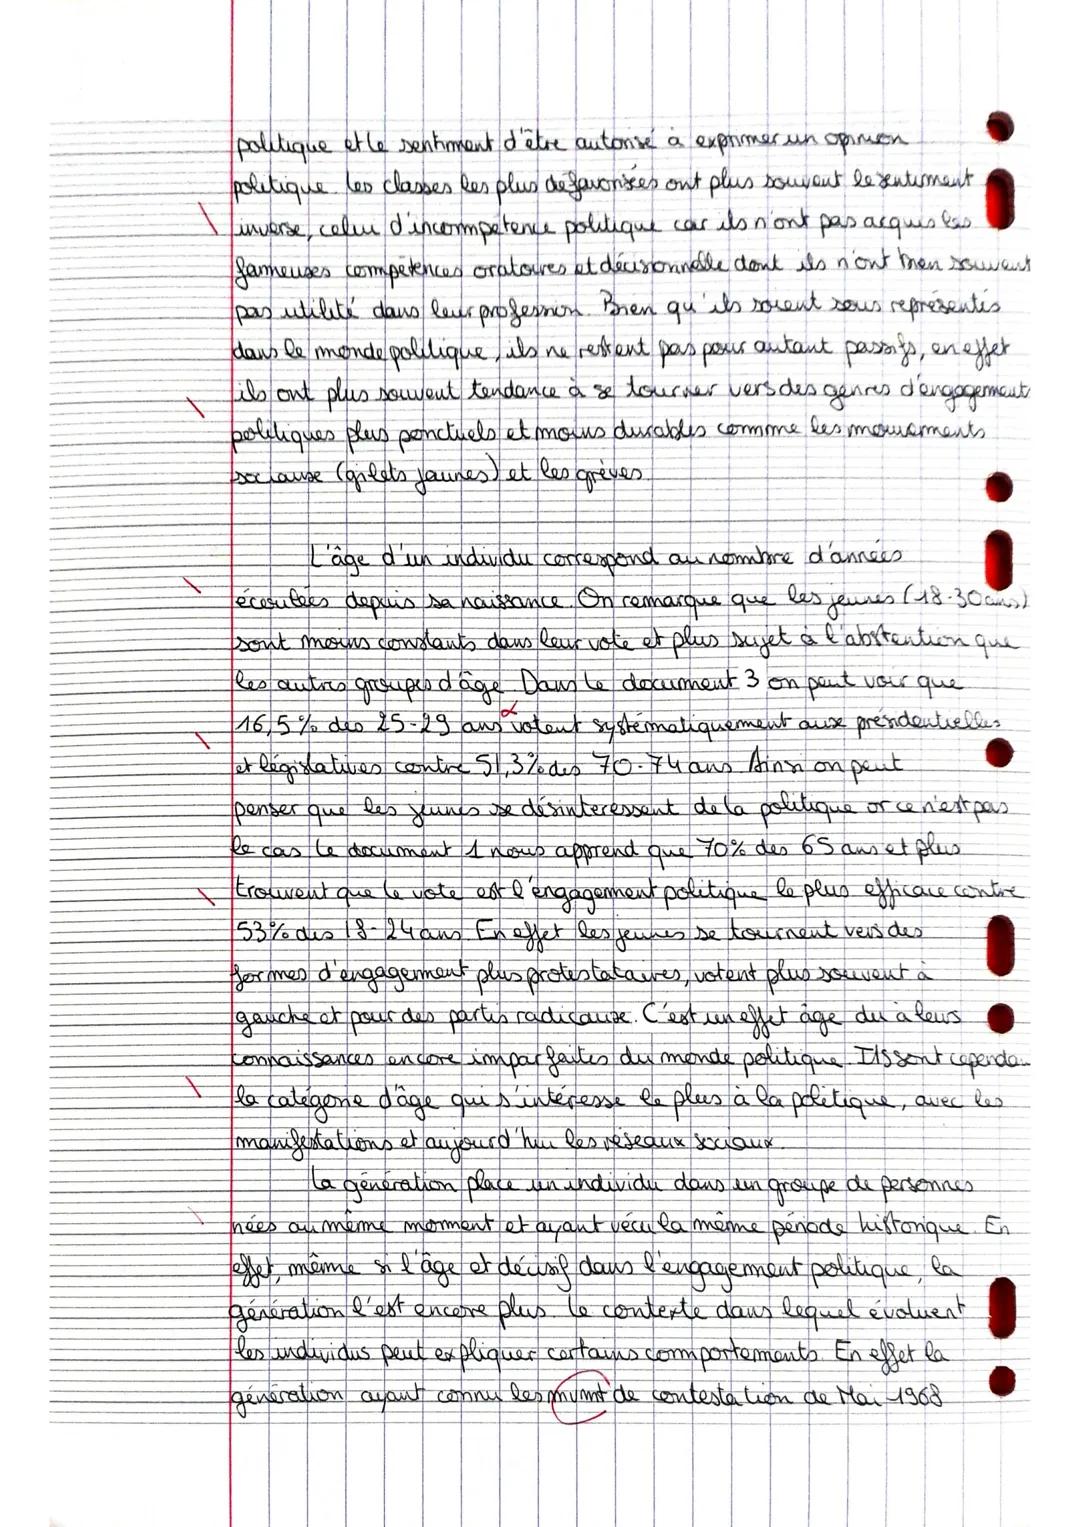 politique et le sentiment d'être autorisé à exprimer un opinion
politique. Les classes les plus défavorisées ont plus souvent le sentiment
inverse, celui d'incompétence politique car ils n'ont pas acquis les
fameuses compétences oratoires et décisionnelle dont ils n'ont bien souvent
pas utilité dans leur profession. Bien qu'ils soient sous représentés
dans le monde politique, ils ne restent pas pour autant passifs, en effet
ils ont plus souvent tendance à se tourner vers des genres d'engagement
politiques plus ponctuels et moins durables comme les mouvements
sociaux (gilets jaunes) et les grèves.
L'âge d'un individu correspond au nombre d'années
écoulées depuis sa naissance. On remarque que les jeunes (18-30 ans)
sont moins constants dans leur vote et plus sujet à l'abstention que
les autres groupes d'âge. Dans le document 3 on peut voir que
16,5% des 25-29 ans votent systématiquement aux présidentielles
et législatives contre 51,3% des 70-74 ans. Ainsi on peut
penser que les jeunes se désinteressent de la politique or ce n'est pas
le cas. Le document 1 nous apprend que 70% des 65 ans et plus
trouvent que le vote est l'engagement politique le plus efficace contre
53% des 18-24 ans. En effet les jeunes se tournent vers des
formes d'engagement plus protestataires, votent plus souvent à
gauche et pour des partis radicaux. C'est un effet âge du à leurs
connaissances encore imparfaites du monde politique. Ils sont cependan
la catégorie d'âge qui s'intéresse le plus à la politique, avec les
manifestations et aujourd'hui les réseaux sociaux.
La génération place un individu dans un groupe de personnes
nées au même moment et ayant vécu la même période historique. En
effet, même si l'âge et décisif dans l'engagement politique, la
génération l'est encore plus. Le contexte dans lequel évoluent
les individus peut expliquer certains comportements. En effet la
génération ayant connu les mvmt de contestation de Mai 1968